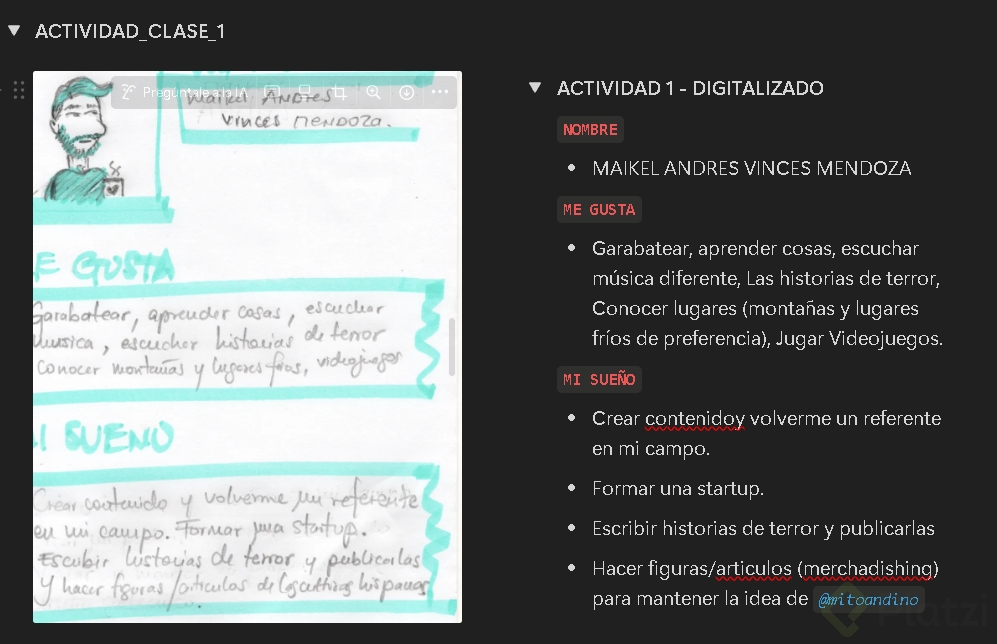 ACTIVIDAD_CLASE_1
Pregúntale a la IA
Maikel ANDRES
VINCES MENDOZA.
E GUSTA
Garabatear, aprender cosas, escuchar
musica, escuchar historias de terror
Conocer montañas y lugares fríos, videojuegos
MI SUEÑO
Crear contenido y volverme un referente
en mi campo. Formar una startup.
Escribir historias de terror y publicarlas
Y hacer figuras/articulos de las culturas hispanas
ACTIVIDAD 1 - DIGITALIZADO
NOMBRE
MAIKEL ANDRES VINCES MENDOZA
ME GUSTA
Garabatear, aprender cosas, escuchar
música diferente, Las historias de terror,
Conocer lugares (montañas y lugares
fríos de preferencia), Jugar Videojuegos.
MI SUEÑO
Crear contenidoy volverme un referente
en mi campo.
Formar una startup.
Escribir historias de terror y publicarlas
Hacer figuras/articulos (merchadishing)
para mantener la idea de @mitoandino
Platzi